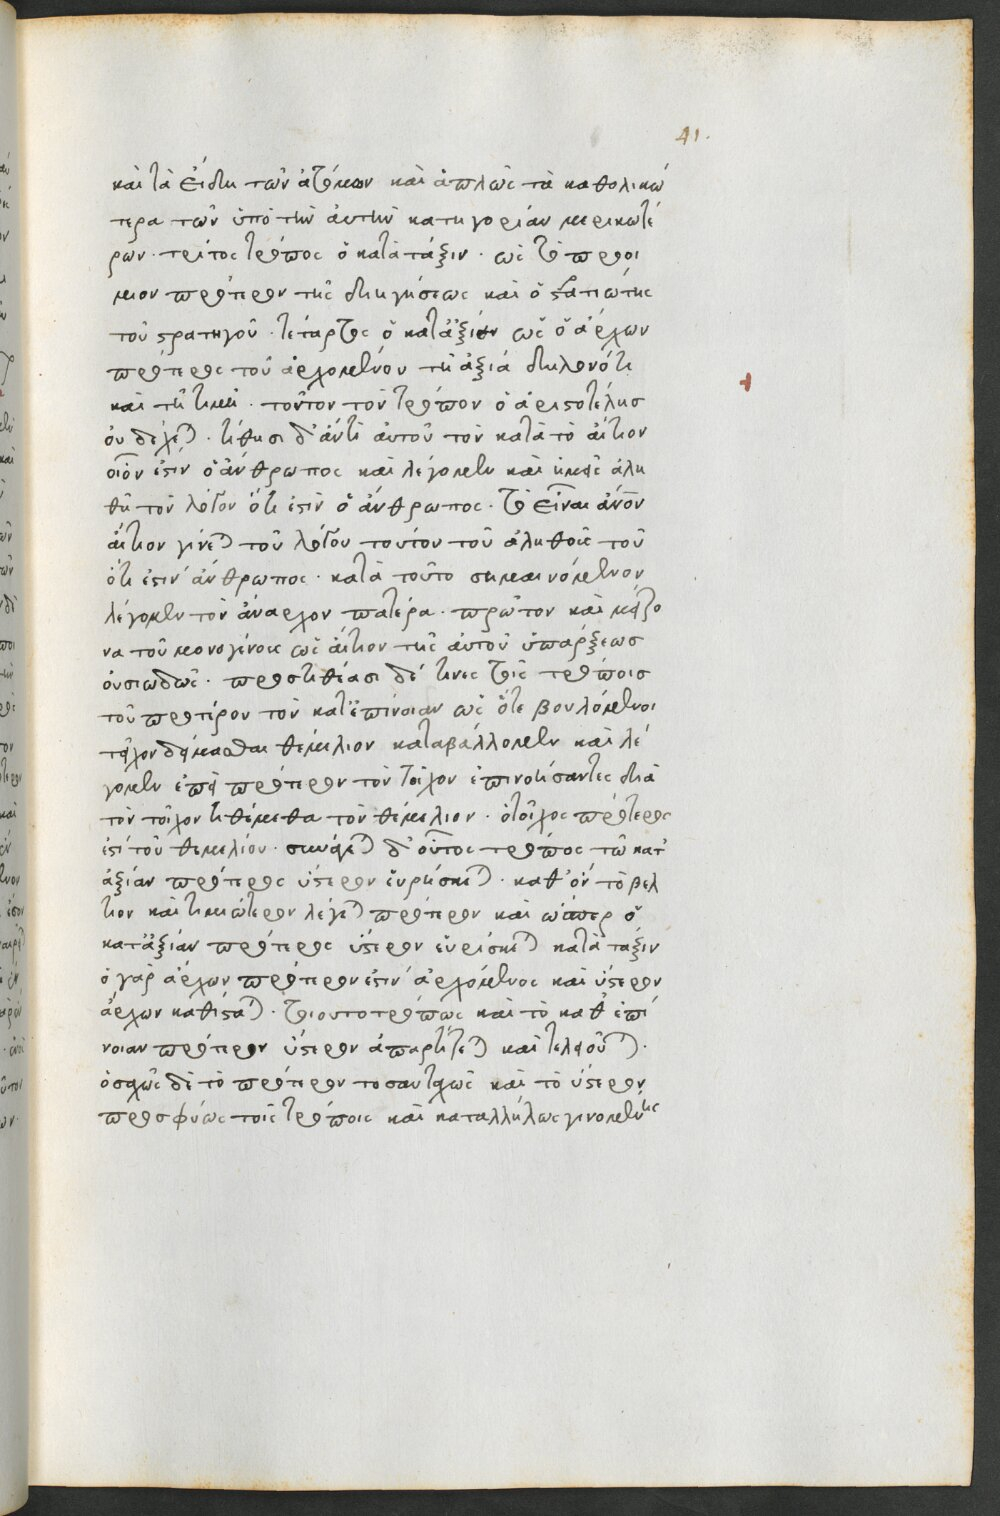 41.
καὶ τὰ εἴδη τῶν ἀτόμων καὶ ἁπλῶς τὰ καθολικώ
τερα τῶν ὑπὸ τὴν ἀυτὴν κατηγορίαν μερικωτέ
ρων. τρίτος τρόπος ὁ κατὰ τάξιν. ὡς τὸ προοί
μιον πρότερον τῆς διηγήσεως καὶ ὁ στρατιώτης
τοῦ στρατηγοῦ. τέταρτος ὁ κατἀξίαν ὡς ὁ ἄρχων
πρότερος τοῦ ἀρχομένου τῆ ἀξία δηλονότι
καὶ τῆ τιμῆ. τοῦτον τὸν τρόπον ὁ ἀριστοτέλησ
οὐ δέχεται. τίθησι δ' ἀντὶ αυτοῦ τὸν κατὰ τὸ αἴτιον
οἷόν ἐστιν ὁ ἄνθρωπος καὶ λέγομεν καὶ ἡμεῖς ἀλη
θῆ τὸν λόγον ὅτι ἐστὶν ὁ ἄνθρωπος. τὸ εἶναι ἄνον
αἴτιον γίνεται τοῦ λόγου τούτου τοῦ ἀληθοῦς τοῦ
ὅτι ἐστιν ἄνθρωπος. κατὰ τοῦτο σημαινόμενον
λέγομεν τὸν ἄναρχον πατέρα. πρῶτον καὶ μείζο
να τοῦ μονογενοῦς ὡς αἴτιον τῆς αὐτοῦ ὑπάρξεωσ
ὀυσιωδῶς. προστιθέασι δέ τινες τοῖς τρόποισ
τοῦ προτέρου τὸν κατ' ἐπίνοιαν ὡς ὅτε βουλόμενοι
τοῖχον δείμασθαι θεμέλιον καταβάλλομεν καὶ λέ
γομεν ἐπεὶ πρότερον τὸν τοῖχον ἐπινοήσαντες διὰ
τὸν τοῖχον τιθέμεθα τὸν θεμέλιον. ὁ τοῖχος πρότερος
ἐστὶ τοῦ θεμελίου. συνάγεται δ' οὗτος τρόπος τῶ κατ'
ἀξίαν πρότερος ὕστερον ἑυρίσκεται. καθ' ὃν τὸ βελ
τιον καὶ τιμιώτερον λέγεται πρότερον καὶ ὥσπερ ὁ
κατἀξίαν πρότερος ὕστερον εὑρίσκεται κατὰ τάξιν
ὁ γὰρ ἄρχων πρότερον ἐστιν ἀρχόμενος καὶ ὕστερον
ἄρχων καθίσταται. τοιουτοτρόπως καὶ τὸ κατ' ἐπί
νοιαν πρότερον ὕστερον ἀπαρτίζεται καὶ τελειοῦται.
ὁσαχῶς δὲ τὸ πρότερον τοσαυταχῶς καὶ τὸ ὕστερον
προσφυῶς τοῖς τρόποις καὶ καταλλήλως γινομένης